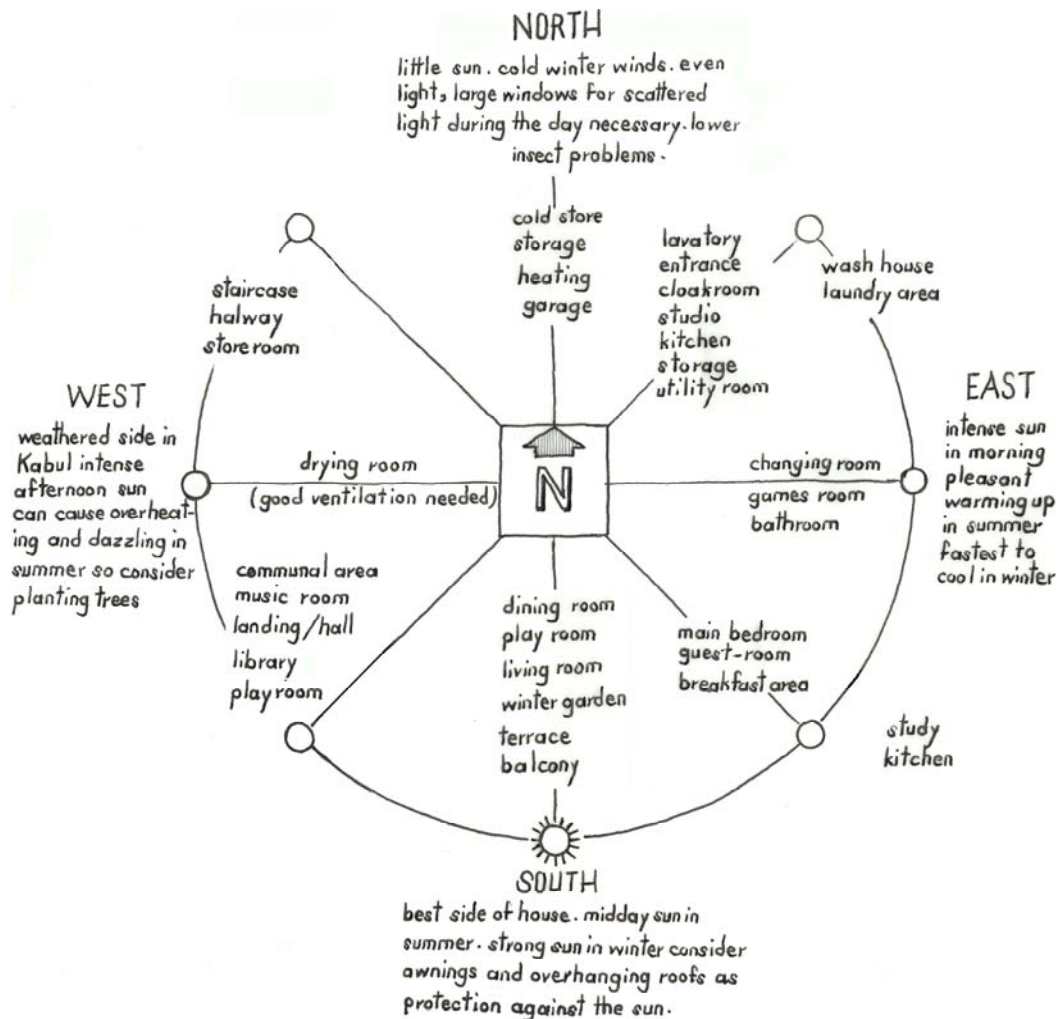 NORTH
little sun. cold winter winds. even
light, large windows for scattered
light during the day necessary. lower
insect problems.
cold store
storage
heating
garage
lavatory
entrance
cloakroom
studio
kitchen
storage
utility room
wash house
laundry area
staircase
halway
storeroom
WEST
weathered side in
Kabul intense
afternoon sun
can cause overheat-
ing and dazzling in
summer so consider
planting trees
drying room
(good ventilation needed)
N
changing room
games room
bathroom
EAST
intense sun
in morning
pleasant
warming up
in summer
fastest to
cool in winter
communal area
music room
landing/hall
library
playroom
dining room
play room
living room
winter garden
terrace
balcony
main bedroom
guest-room
breakfast area
study
kitchen
SOUTH
best side of house. midday sun in
summer. strong sun in winter consider
awnings and overhanging roofs as
protection against the sun.